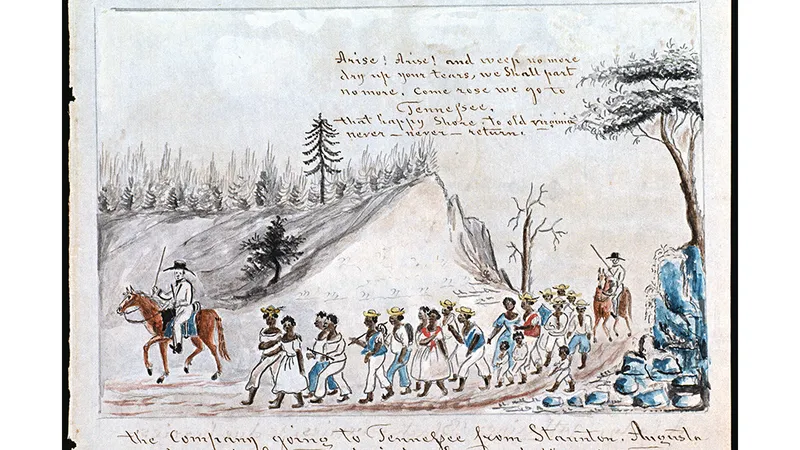 Arise! Arise! and weep no more
dry up your tears, we shall part
no more. Come rose we go to
Tennessee,
that happy Shore, to old virginia
never – never – return.
the Company going to Tennessee from Staunton, Augusta